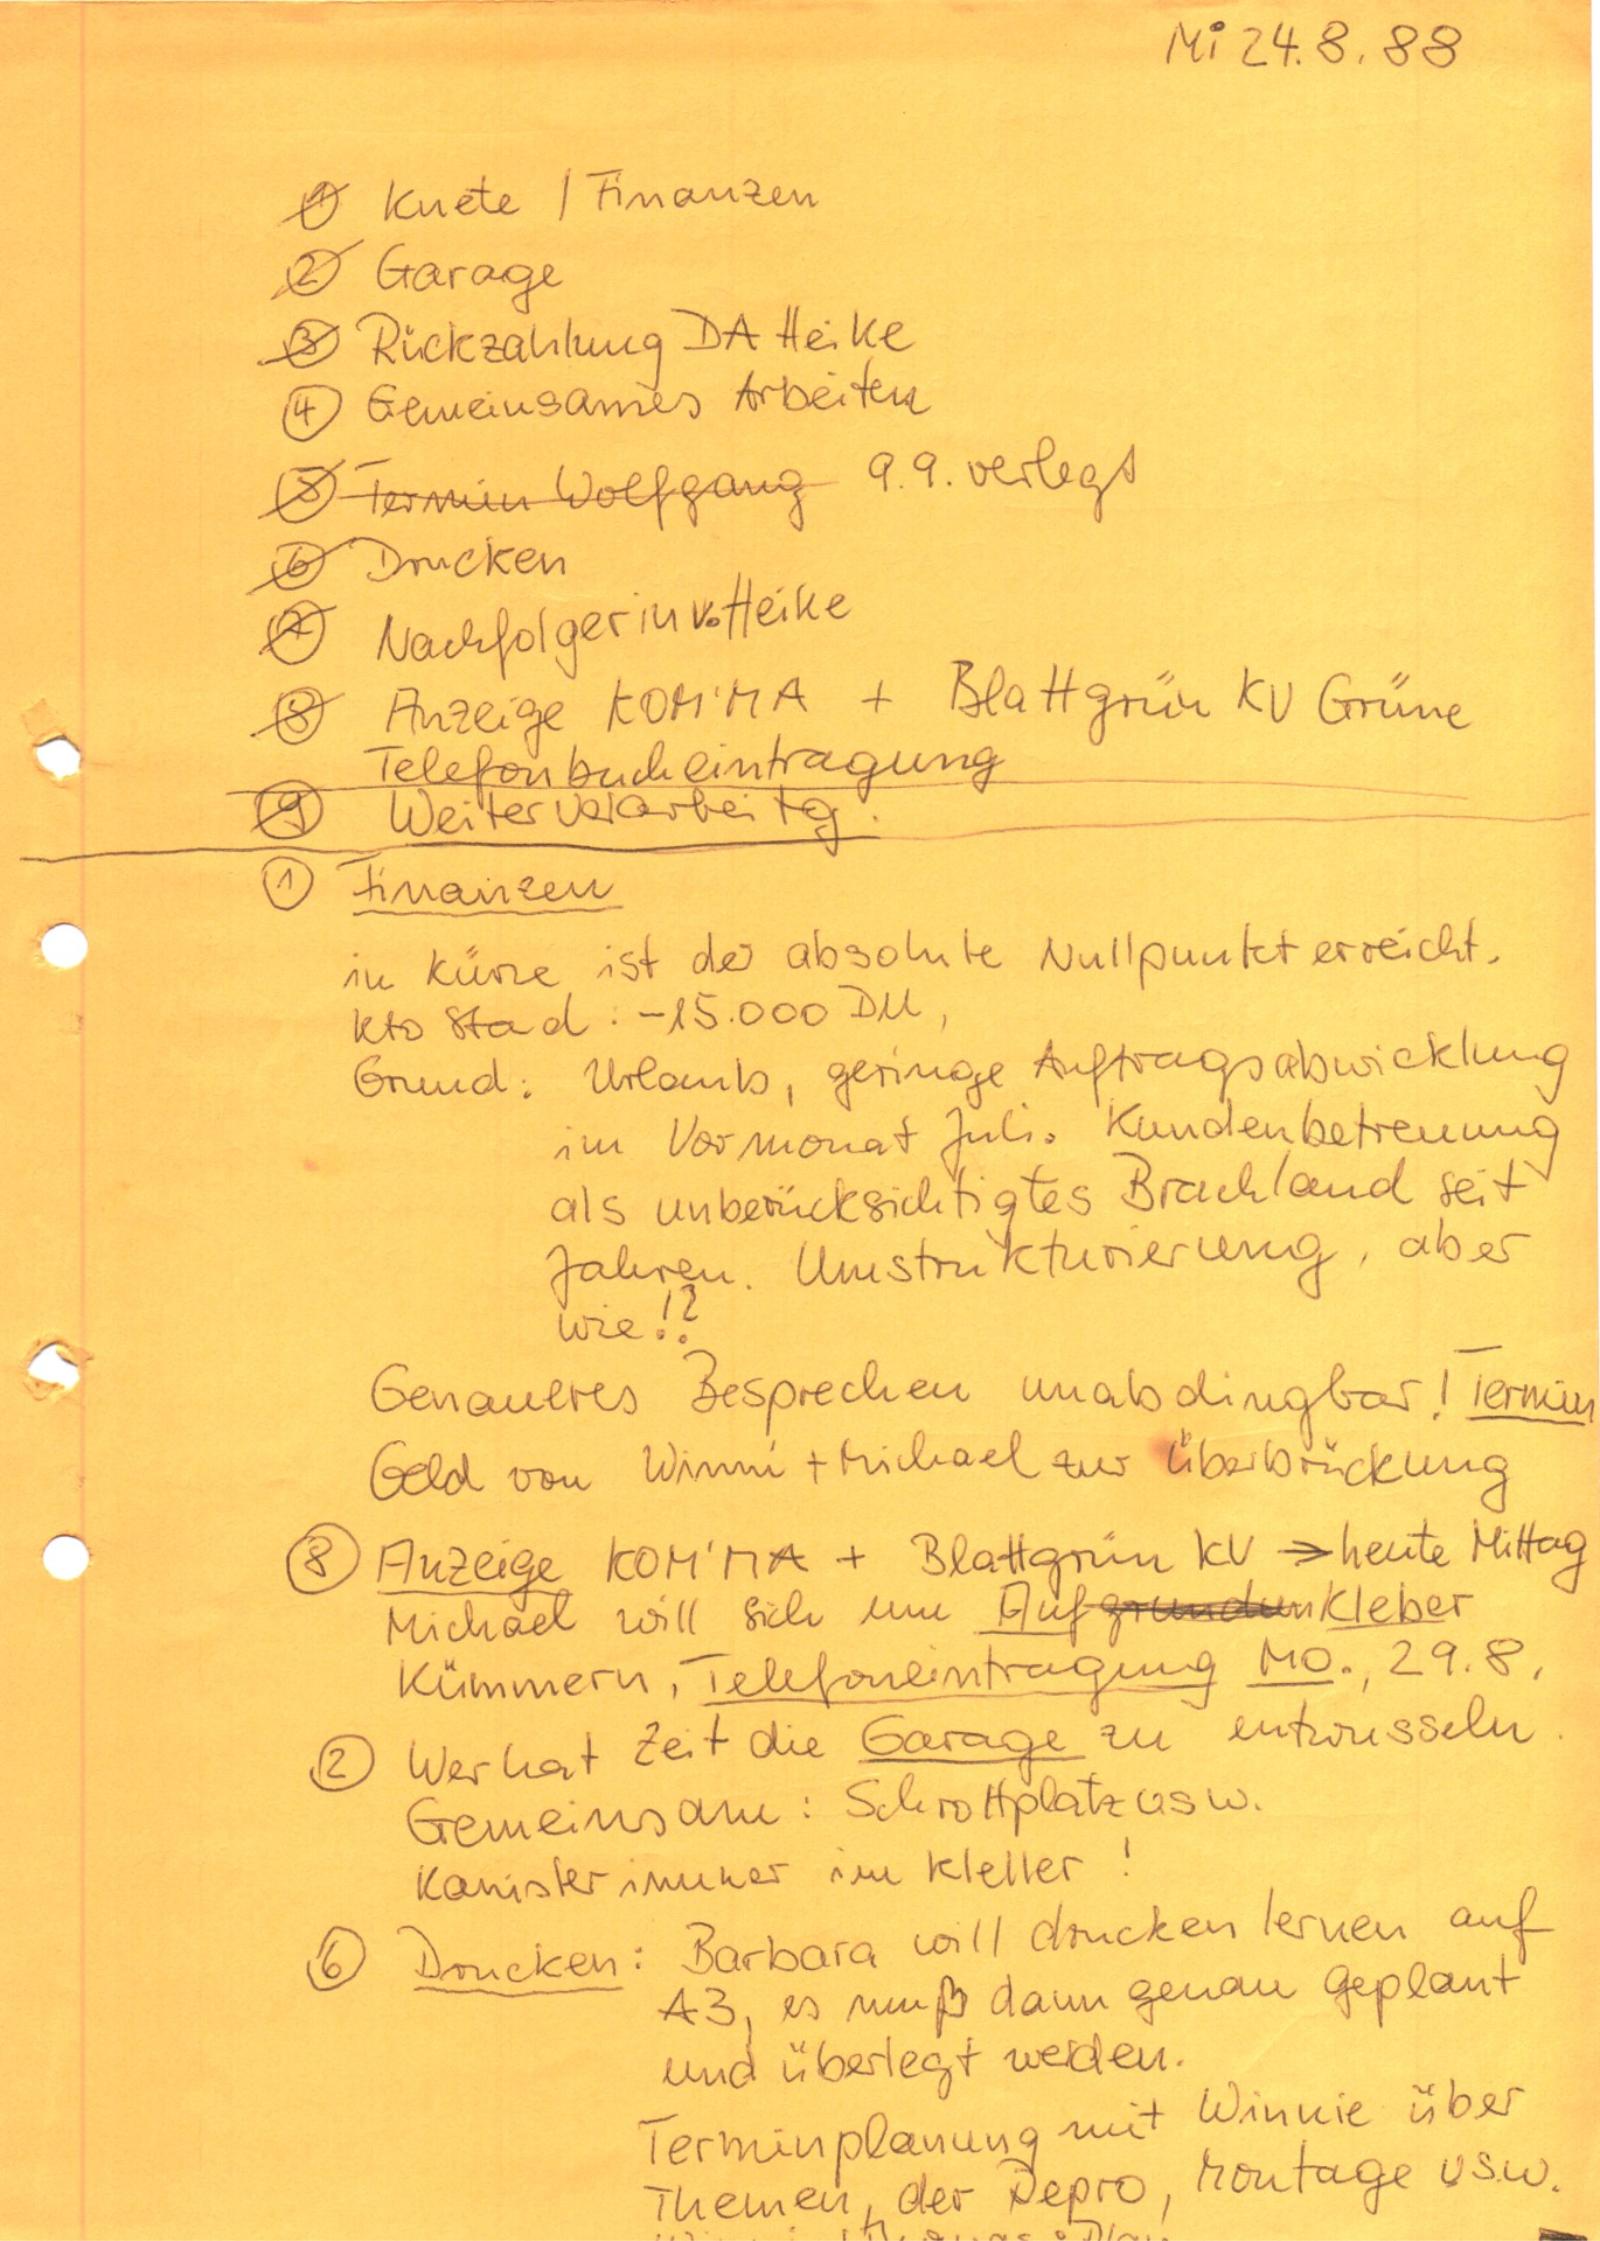 Mi 24.8.88
① Knete / Finanzen
② Garage
③ Rückzahlung DA Heike
④ Gemeinsames Arbeiten
⑤ Termin Wolfgang 9.9. verlegt
⑥ Drucken
⑦ Nachfolgerin v. Heike
⑧ Anzeige KOM'MA + Blattgrün KV Grüne
Telefonbucheintragung
⑨ Weiterverarbeitg.
① Finanzen
in Kürze ist der absolute Nullpunkt erreicht.
Kto Stad : -15.000 DM,
Grund: Urlaub, geringe Auftragsabwicklung
im Vormonat Juli. Kundenbetreuung
als unberücksichtigtes Brachland seit
Jahren. Umstrukturierung, aber
wie!?
Genaueres Besprechen unabdingbar! Termin
Geld von Winni + Michael zur Überbrückung
⑧ Anzeige KOM'MA + Blattgrün KV → heute Mittag
Michael will sich um Aufkleber
kümmern, Telefoneintragung MO., 29.8.
② Wer hat Zeit die Garage zu entrusseln.
Gemeinsam: Schrottplatz usw.
Kanister immer im Kleller!
⑥ Drucken: Barbara will drucken lernen auf
A3, es muß dann genau geplant
und überlegt werden.
Terminplanung mit Winnie über
Themen, der Repro, Montage usw.